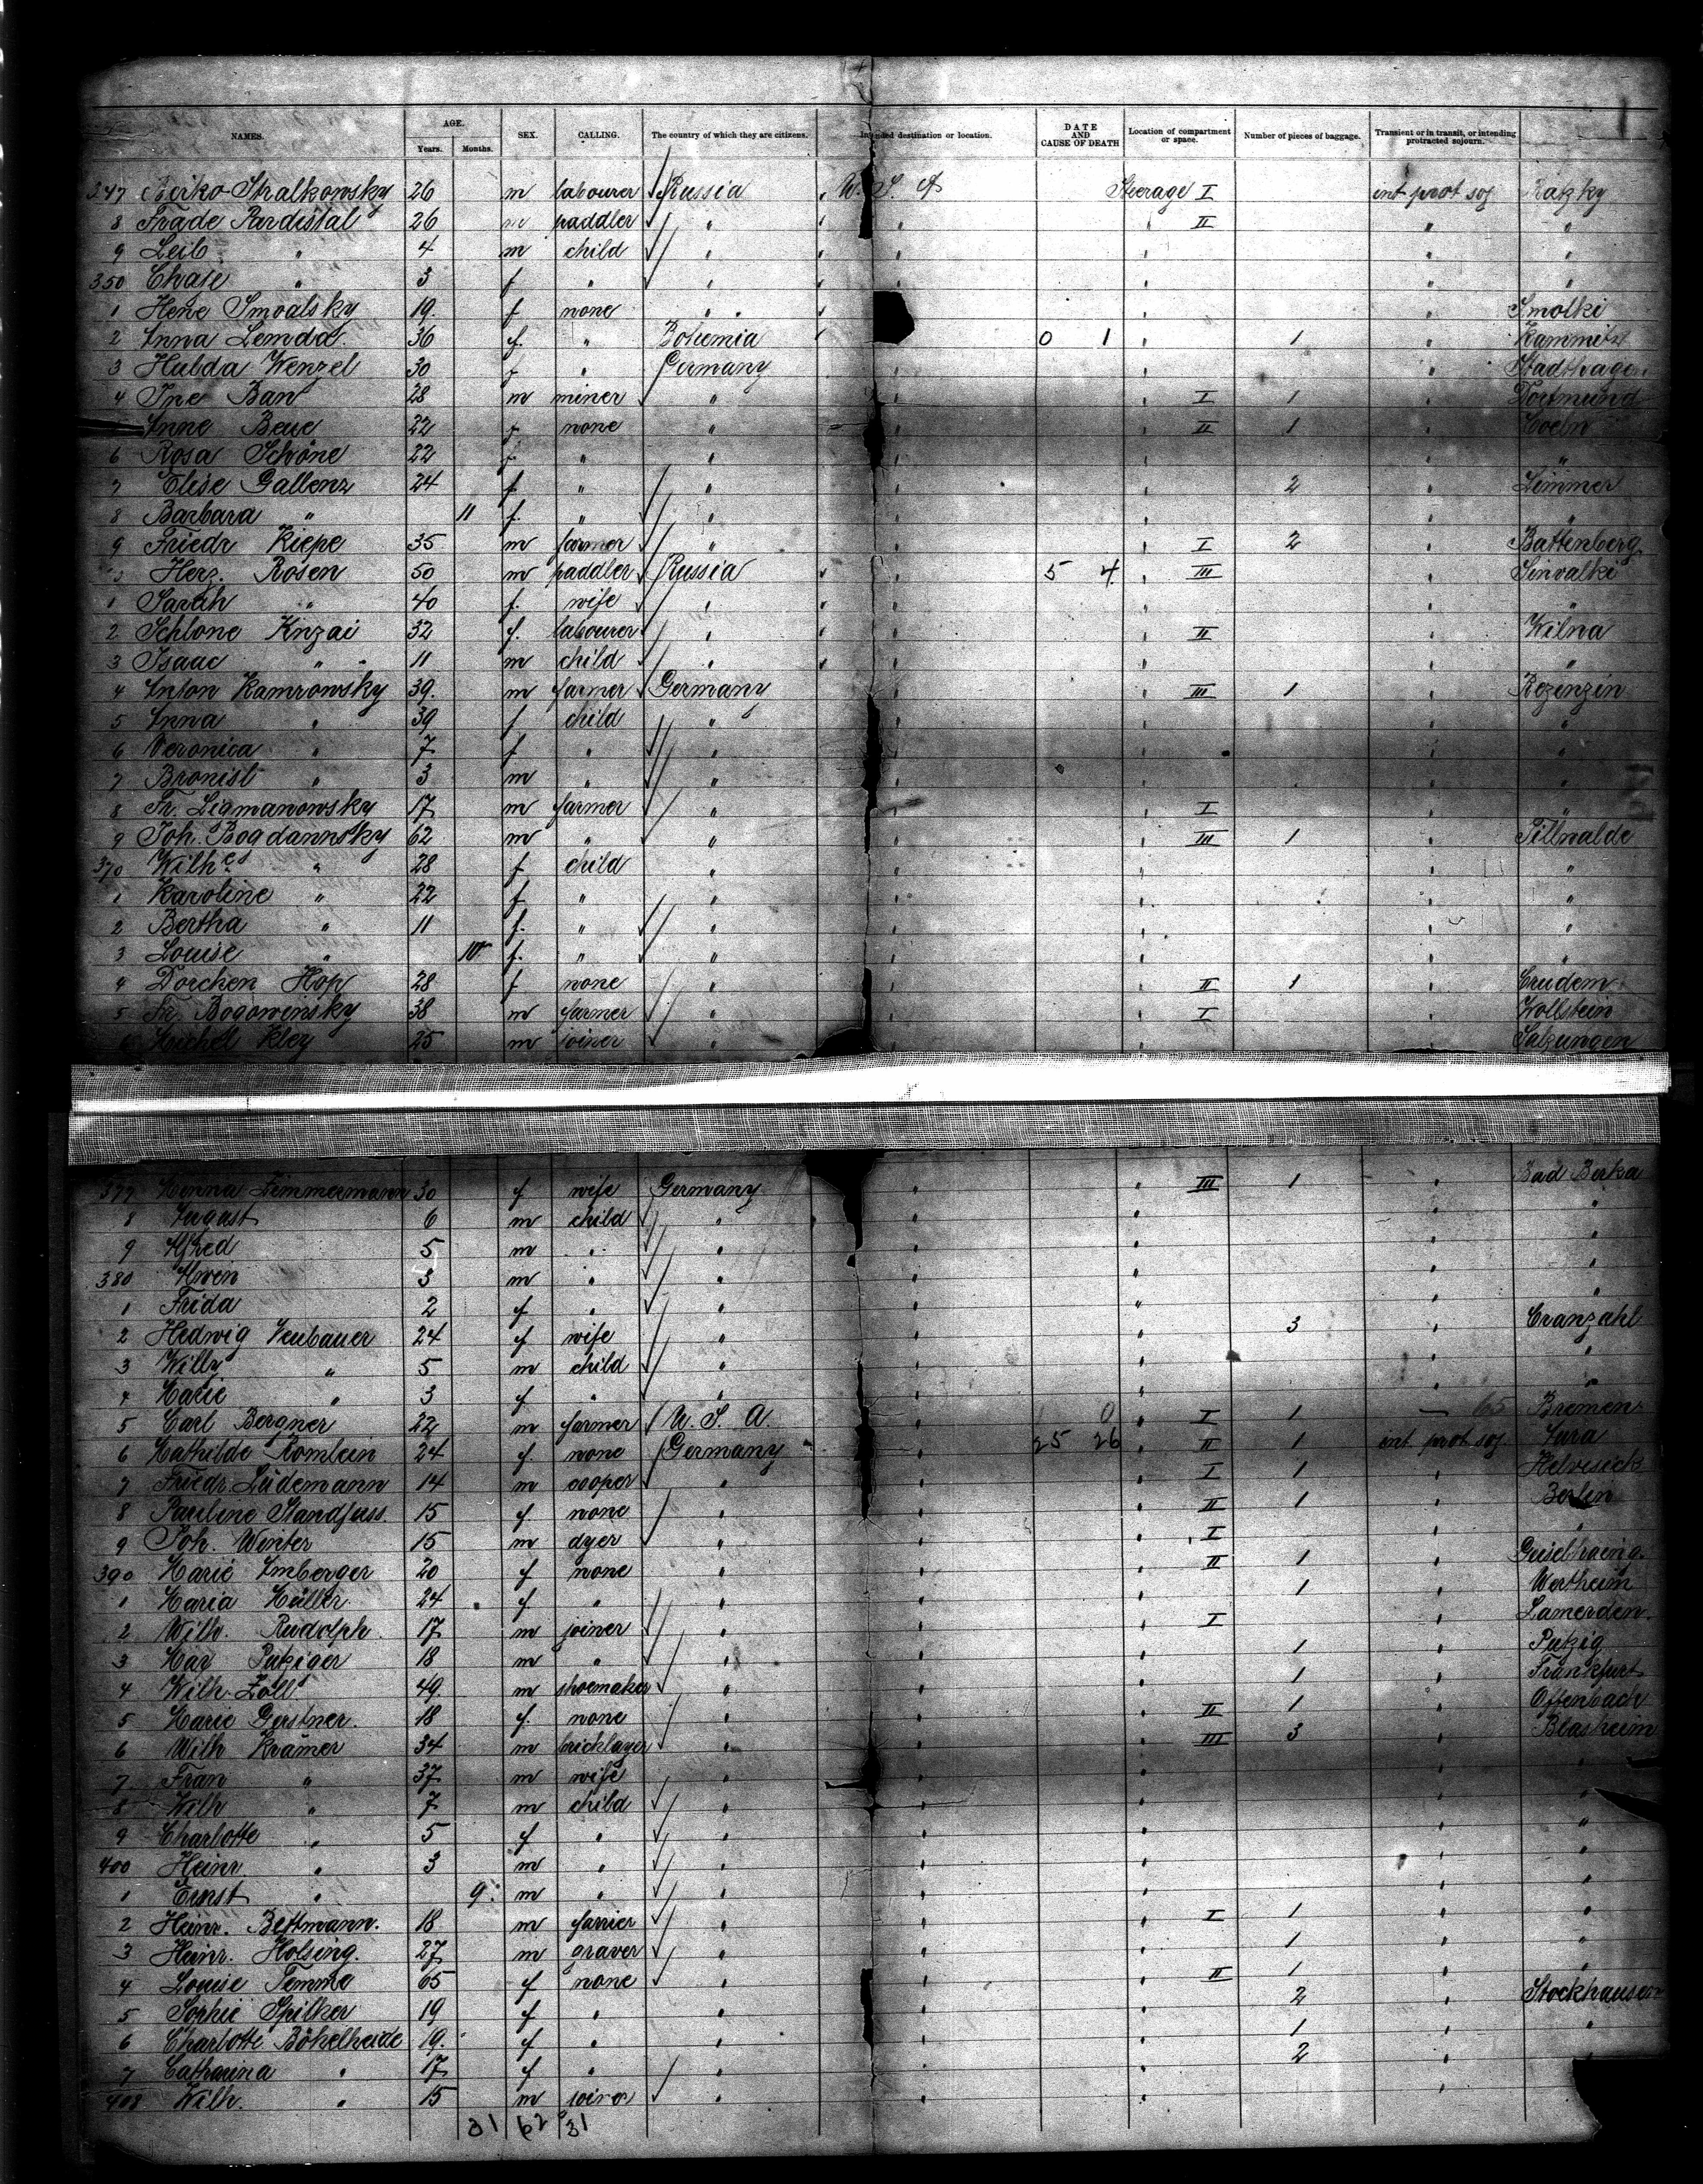 NAMES. AGE. Years. Months. SEX. CALLING. The country of which they are citizens. Intended destination or location. DATE AND CAUSE OF DEATH Location of compartment or space. Number of pieces of baggage. Transient or in transit, or intending protracted sojourn.
247 Stralkowsky 26 m labourer Russia U. S. A Steerage I int prot soj Razky
8 Frade Pardistal 26 m paddler " " " II " "
9 Leib " 4 m child " " " " "
350 Chase " 3 f " " " " " "
1 Hene Smoalsky 19 f none " " " " Smolki
2 Anna Lemda 36 f. " Bohemia 0 1 " 1 " Kammitz
3 Hulda Wenzel 30 f " Germany " " " Stadthagen
4 Ban 28 m miner " " " I 1 " Dortmund
Anne Beue 22 f none " " II 1 " Coeln
6 Rosa Schöne 22 f " " " " " "
7 Elise Gallenz 24 f " " " " 2 " Limmer
8 Barbara " 11 f. " " " " " "
9 Friedr Kiepe 35 m farmer " " " I 2 " Battenberg
Herz. Rosen 50 m paddler Russia " 5 4 " III " Sinvalki
1 Sarah " 40 f. wife " " " " "
2 Schlone Knzai 32 f. labourer " " " II " Wilna
3 Isaac " " 11 m child " " " " "
4 Anton Kamrowsky 39. m farmer Germany " " III 1 " Rezenzin
5 Anna " 39 f child " " " " "
6 Veronica " 7 f " " " " " "
7 Bronisl " 3 m " " " " " "
8 Fr. Ligmanowsky 17 m farmer " " " I " "
9 Joh. Bogdannsky 62 m " " " " III 1 " Pillwalde
370 Wilh " 28 f child " " " " "
1 Karoline " 22 f " " " " " "
2 Bertha " 11 f. " " " " " "
3 Louise " 10 f. " " " " " "
4 Dorchen Hop 28 f none " " " II 1 " Crudem
5 Fr. Bogowinsky 38 m farmer " " " I " Wollstein
6 Michel Kley 25 m joiner " " " " Salzungen
377 Minna Zimmermann 30 f wife Germany " " III 1 " Bad Berka
8 August 6 m child " " " " "
9 Alfred 5 m " " " " " "
380 Alwin 3 m " " " " " "
1 Frida 2 f " " " " " "
2 Hedwig Neubauer 24 f wife " " " 3 " Cranzahl
3 Willy " 5 m child " " " " "
4 Marie " 3 f " " " " " "
5 Carl Bergner 22 m farmer U. S. A. " 0 " I 1 — 65 Bremen
6 Mathilde Römlein 24 f. none Germany " 25 26 " II 1 int prot soj
7 Friedr. Lüdemann 14 m cooper " " " I 1 " Helvesick
8 Pauline Standfuss 15 f. none " " " II 1 " Berlin
9 Joh. Winter 15 m dyer " " " I " "
390 Marie Amberger 20 f none " " " II 1 " Geiselhoering
1 Maria Müller 24 f. " " " " 1 " Wertheim
2 Wilh. Rudolph 17 m joiner " " " I " Lamerden
3 Max Putziger 18 m " " " " 1 " Putzig
4 Wilh. Zöll 49. m shoemaker " " " 1 " Frankfurt
5 Marie Gerstner. 18 f. none " " " II 1 " Offenbach
6 Wilh Krämer 34 m bricklayer " " " III 3 " Blasheim
7 Frau " 37 m wife " " " " "
8 Wilh " 7 m child " " " " "
9 Charlotte " 5 f " " " " " "
400 Heinr " 3 m " " " " " "
1 Ernst " 9. m " " " " " "
2 Heinr. Bettmann. 18 m farrier " " " I 1 " "
3 Heinr. Holsing. 27 m graver " " " 1 " "
4 Louise Temme 65 f none " " " II 1 " "
5 Sophie Spilker 19 f " " " " 2 " Stockhausen
6 Charlotte Bökelheide 19. f " " " " 1 " "
7 Catharina " 17 f " " " " 2 " "
408 Wilh. " 15 m joiner " " " "
31 62 31